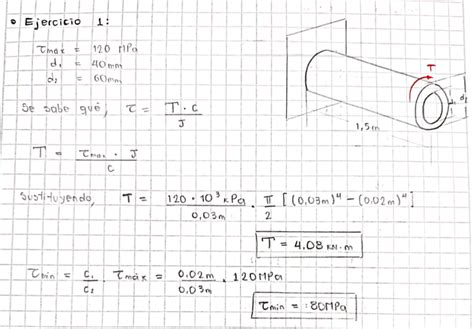 • Ejercicio 1:
τmax = 120 MPa
d₁ = 40mm
d₂ = 60mm
Se sabe qué, τ = T · c / J
T = τmax · J / c
Sustituyendo, T = 120 · 10³ kPa / 0,03m · π / 2 [(0,03m)⁴ − (0.02m)⁴]
T = 4.08 KN·m
τmin = c₁ / c₂ · τmáx = 0.02m / 0.03m · 120MPa
τmin = 80MPa
T
d₂
1,5m